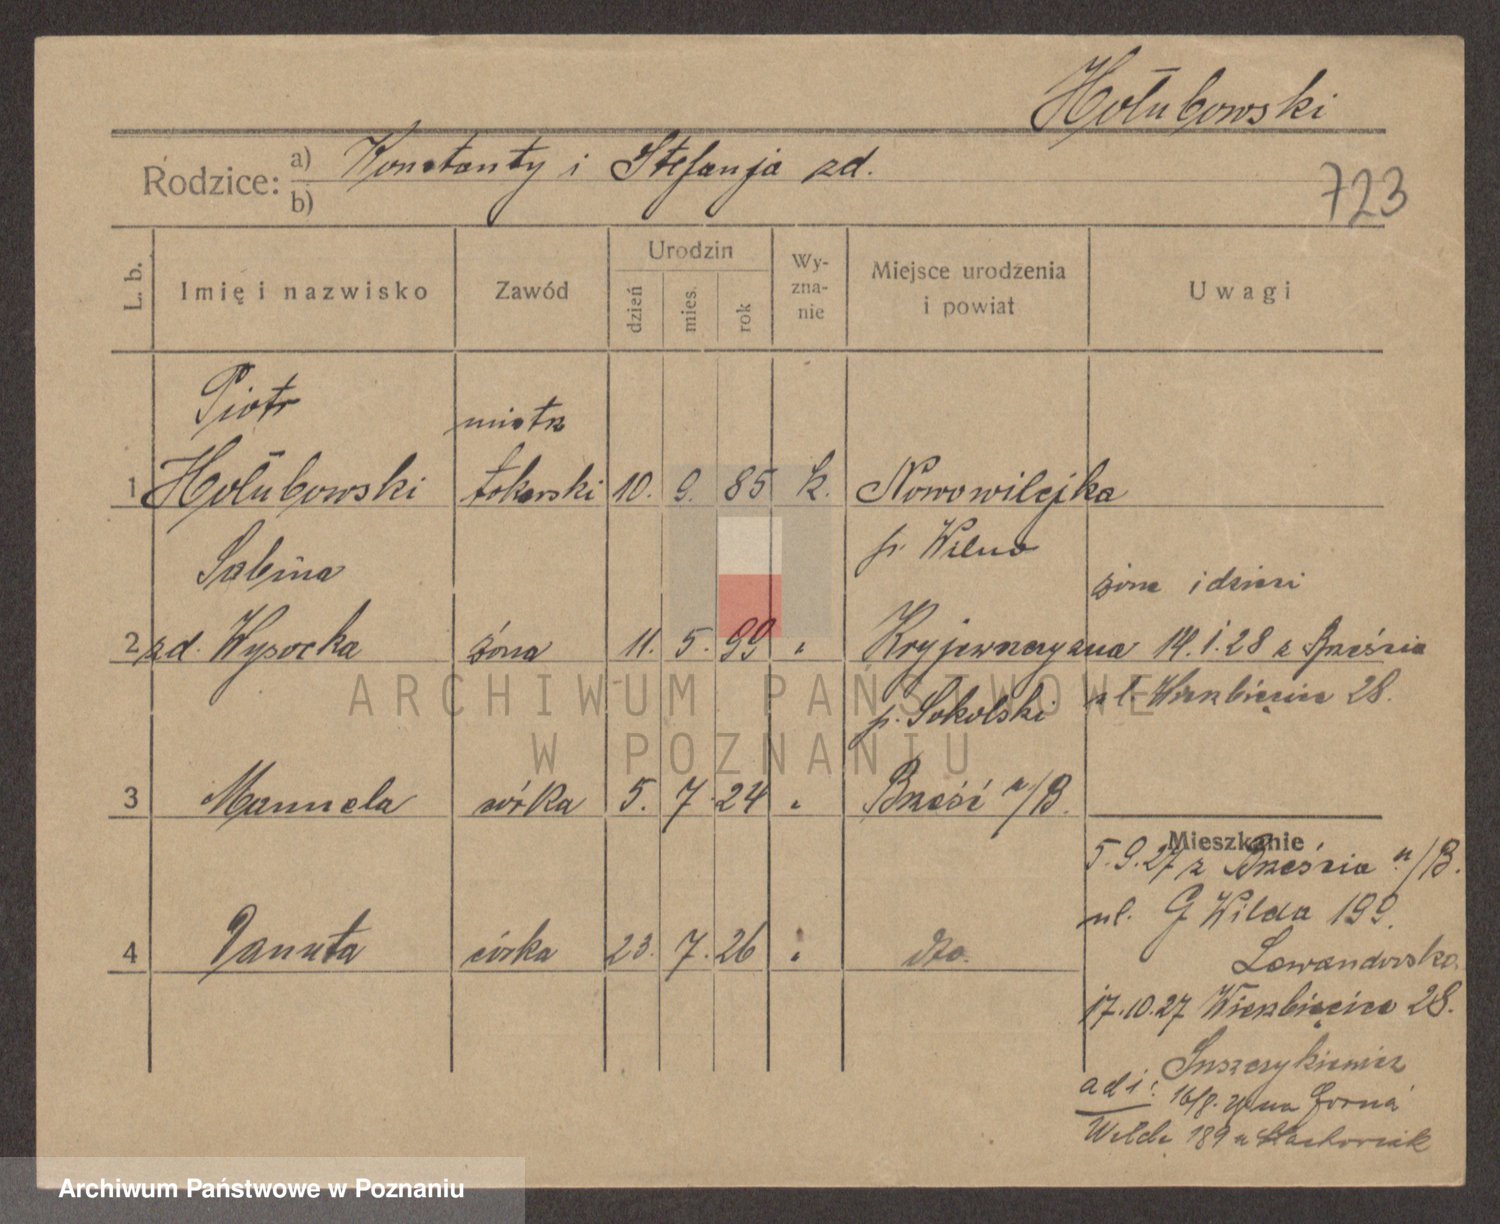 Hołubowski
Rodzice: a) Konstanty i Stefanja zd.
b)
723
L. b.
Imię i nazwisko
Zawód
Urodzin
dzień
mies.
rok
Wy-
zna-
nie
Miejsce urodzenia
i powiat
Uwagi
Piotr
mistrz
1 Hołubowski tokarski 10. 9. 85 k. Nowowilejka
p. Wilno
Sabina
żona i dzieci
2 zd. Wysocka żona 11. 5. 99 " 14.1.28 z Brześcia
ul. Wierzbięcice 28.
p. Sokolski
3 Manuela córka 5. 7. 24 " Brześć n/B.
Mieszkanie
5.9.27 z Brześcia n/B.
ul. G Wilda 199.
4 Danuta córka 23. 7. 26 " dto.
Lewandowska
17.10.27 Wierzbięcice 28.
adi: 16/8. na Górna
Wilda 189
ARCHIWUM PAŃSTWOWE
W POZNANIU
Archiwum Państwowe w Poznaniu